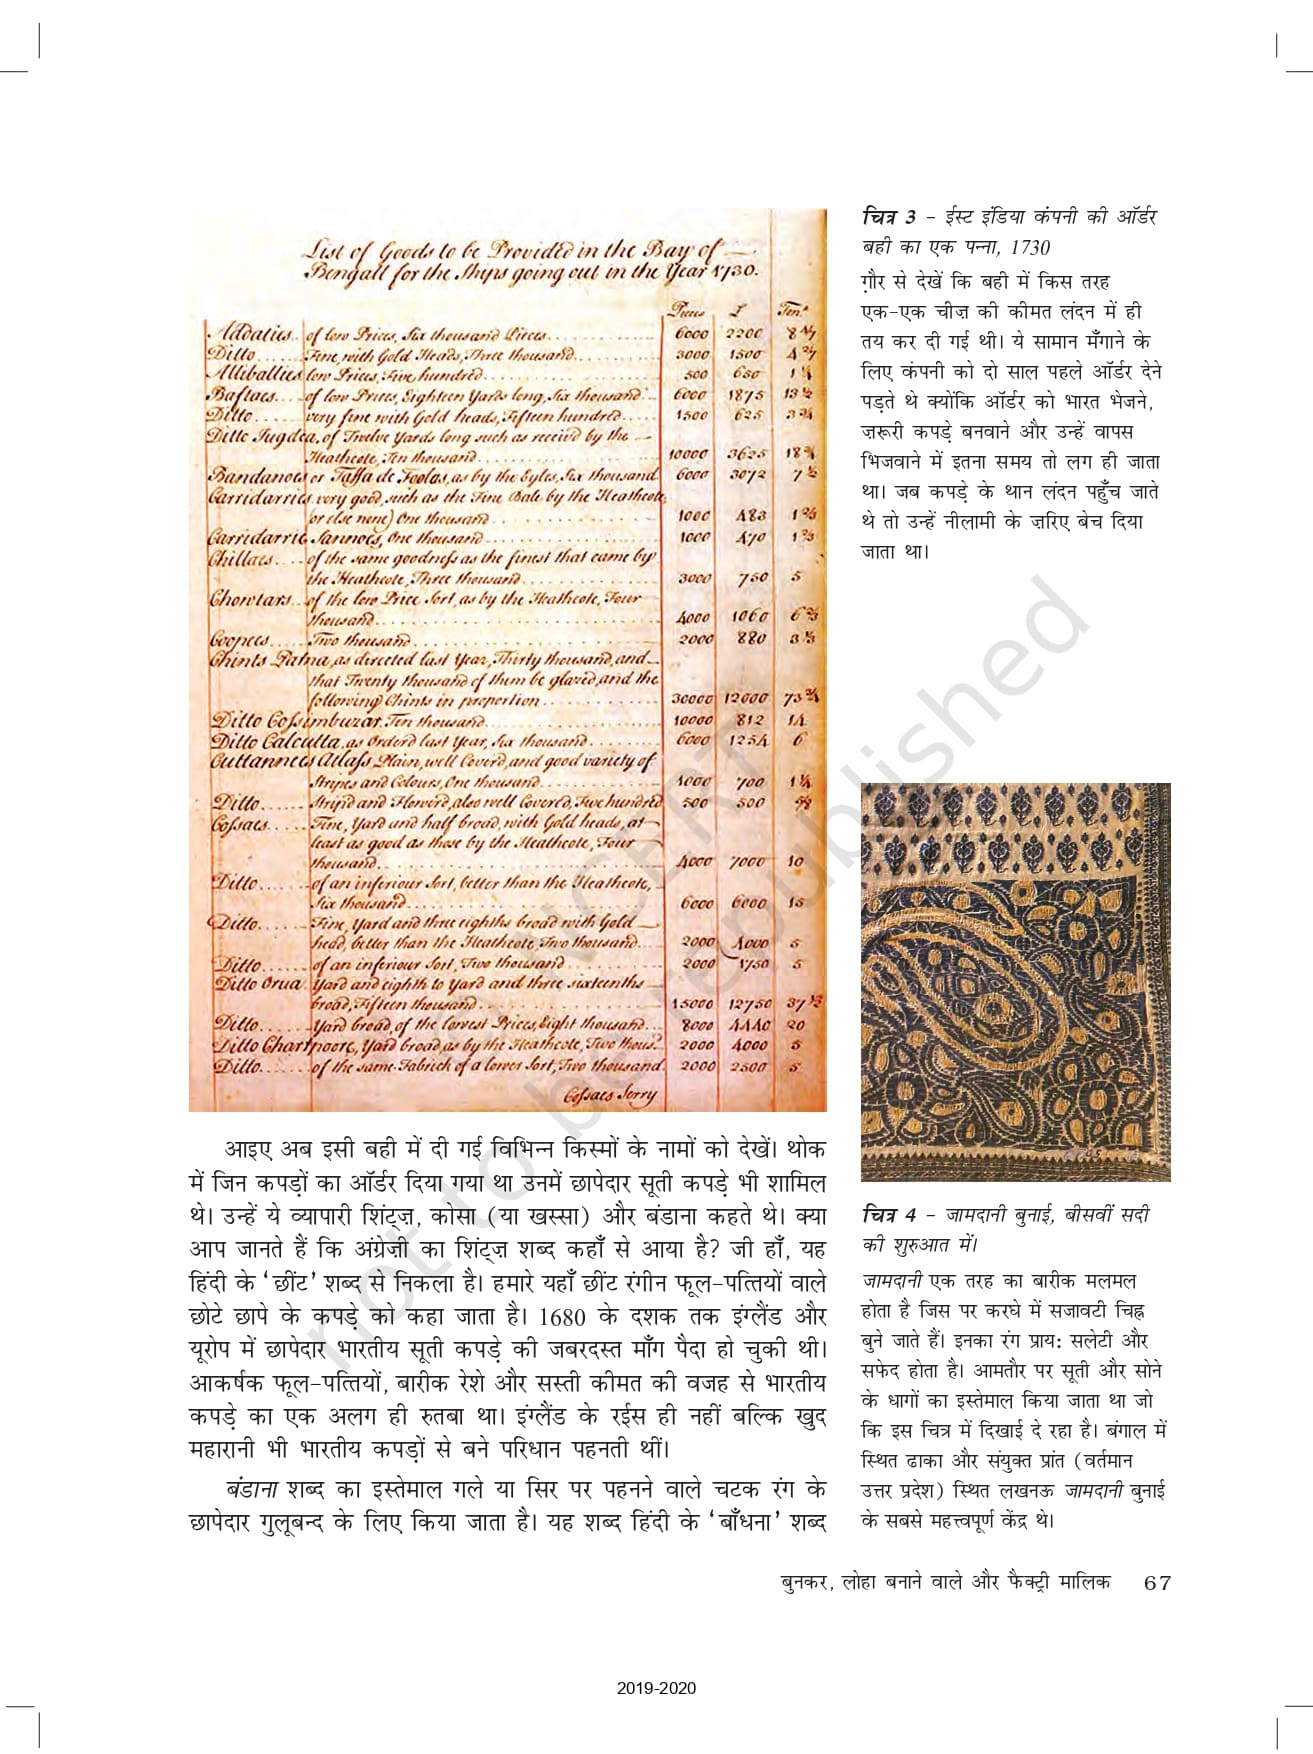 List of Goods to be Provided in the Bay of
Bengall for the Ships going out in the Year 1730.
Pieces £ Tons
Addaties.. of low Prices, Six thousand Pieces 6000 2200
Ditto.... Fine, with Gold Heads, Three thousand 3000 1500
Alliballies low Prices, Five hundred 500 650
Baftaes... of low Prices, Eighteen Yards long, Six thousand 6000 1875 13 ½
Ditto..... very fine with Gold heads, Fifteen hundred 1500 625
Ditto Jugdea, of Twelve Yards long such as receivd by the
Heathcote, Ten thousand 10000 3625
Bandanoes or Taffa de Foolas, as by the Eyles, Six thousand 6000 3072 7 ½
Carridarries very good, such as the Fine Bale by the Heathcote
(or else none) One thousand 1000 483
Carridarrie Sannoes, One thousand 1000 470
Chillaes.... of the same goodness as the finest that came by
the Heathcote, Three thousand 3000 750 5
Chowtars.. of the low Price Sort, as by the Heathcote, Four
thousand 4000 1060 6 ⅔
Coopees..... Two thousand 2000 880 3 ⅓
Chints Patna, as directed last Year, Thirty thousand, and
that Twenty thousand of them be glazed, and the
following Chints in proportion 30000 12000
Ditto Cossimbuzar, Ten thousand 10000 812 14
Ditto Calcutta, as Orderd last Year, Six thousand 6000 1254 6
Cuttannees Atlass, Plain, well Coverd, and good variety of
Stripes and Colours, One thousand 1000 700
Ditto...... Strip'd and Flower'd, also well Covered, Five hundred 500 500
Cossaes..... Fine, Yard and half broad, with Gold heads, at
least as good as those by the Heathcote, Four
thousand 4000 7000 10
Ditto...... of an inferiour Sort, better than the Heathcote,
Six thousand 6000 6000 15
Ditto...... Fine, Yard and three eighths broad with Gold
head, better than the Heathcote, Two thousand 2000 4000 5
Ditto...... of an inferiour Sort, Two thousand 2000 1750 5
Ditto Orua Yard and eighth to Yard and three sixteenths
broad, Fifteen thousand 15000 12750 37 ½
Ditto...... Yard broad, of the lowest Prices, Eight thousand 8000 4440 20
Ditto Charpoore, Yard broad as by the Heathcote, Two thous.d 2000 4000 5
Ditto...... of the same Fabrick of a lower Sort, Two thousand 2000 2500 5
Cossaes
चित्र 3 – ईस्ट इंडिया कंपनी की ऑर्डर
बही का एक पन्ना, 1730
ग़ौर से देखें कि बही में किस तरह
एक-एक चीज़ की कीमत लंदन में ही
तय कर दी गई थी। ये सामान मँगाने के
लिए कंपनी को दो साल पहले ऑर्डर देने
पड़ते थे क्योंकि ऑर्डर को भारत भेजने,
ज़रूरी कपड़े बनवाने और उन्हें वापस
भिजवाने में इतना समय तो लग ही जाता
था। जब कपड़े के थान लंदन पहुँच जाते
थे तो उन्हें नीलामी के ज़रिए बेच दिया
जाता था।
आइए अब इसी बही में दी गई विभिन्न किस्मों के नामों को देखें। थोक
में जिन कपड़ों का ऑर्डर दिया गया था उनमें छापेदार सूती कपड़े भी शामिल
थे। उन्हें ये व्यापारी शिंट्ज़, कोसा (या खस्सा) और बंडाना कहते थे। क्या
आप जानते हैं कि अंग्रेज़ी का शिंट्ज़ शब्द कहाँ से आया है? जी हाँ, यह
हिंदी के ‘छींट’ शब्द से निकला है। हमारे यहाँ छींट रंगीन फूल-पत्तियों वाले
छोटे छापे के कपड़े को कहा जाता है। 1680 के दशक तक इंग्लैंड और
यूरोप में छापेदार भारतीय सूती कपड़े की जबरदस्त माँग पैदा हो चुकी थी।
आकर्षक फूल-पत्तियों, बारीक रेशे और सस्ती कीमत की वजह से भारतीय
कपड़े का एक अलग ही रुतबा था। इंग्लैंड के रईस ही नहीं बल्कि खुद
महारानी भी भारतीय कपड़ों से बने परिधान पहनती थीं।
बंडाना शब्द का इस्तेमाल गले या सिर पर पहनने वाले चटक रंग के
छापेदार गुलूबन्द के लिए किया जाता है। यह शब्द हिंदी के ‘बाँधना’ शब्द
चित्र 4 – जामदानी बुनाई, बीसवीं सदी
की शुरुआत में।
जामदानी एक तरह का बारीक मलमल
होता है जिस पर करघे में सजावटी चिह्न
बुने जाते हैं। इनका रंग प्राय: सलेटी और
सफेद होता है। आमतौर पर सूती और सोने
के धागों का इस्तेमाल किया जाता था जो
कि इस चित्र में दिखाई दे रहा है। बंगाल में
स्थित ढाका और संयुक्त प्रांत (वर्तमान
उत्तर प्रदेश) स्थित लखनऊ जामदानी बुनाई
के सबसे महत्त्वपूर्ण केंद्र थे।
बुनकर, लोहा बनाने वाले और फैक्ट्री मालिक 67
2019-2020
not to be republished